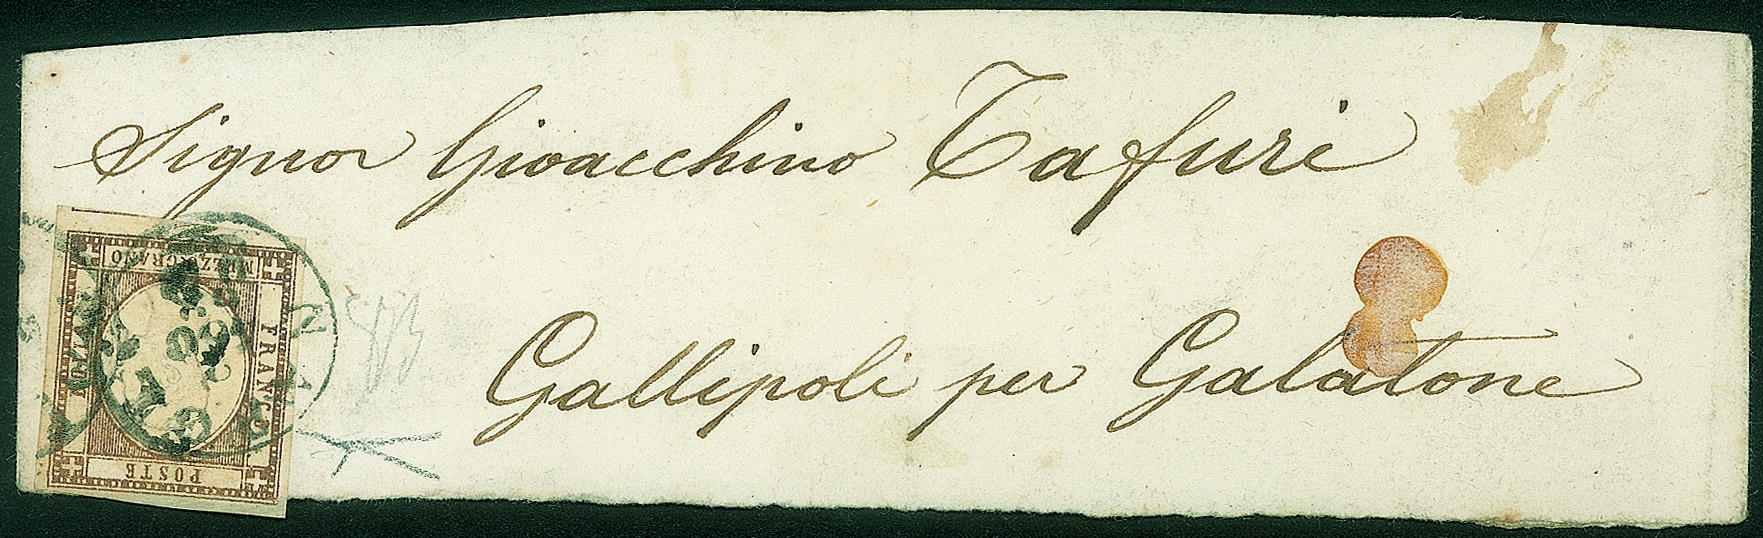 Signor Gioacchino Tafuri
Gallipoli per Galatone
MEZZO GRANO
FRANCO
BOLLO
POSTE